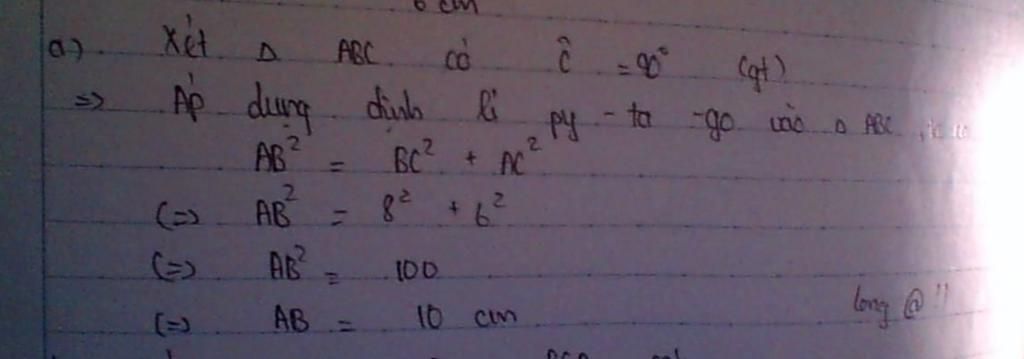 6 cm
a) Xét Δ ABC có Ĉ = 90° (gt)
=> Áp dụng định lí py - ta - go vào Δ ABC, ta có
AB² = BC² + AC²
(=) AB² = 8² + 6²
(=) AB² = 100
(=) AB = 10 cm
long @ !!